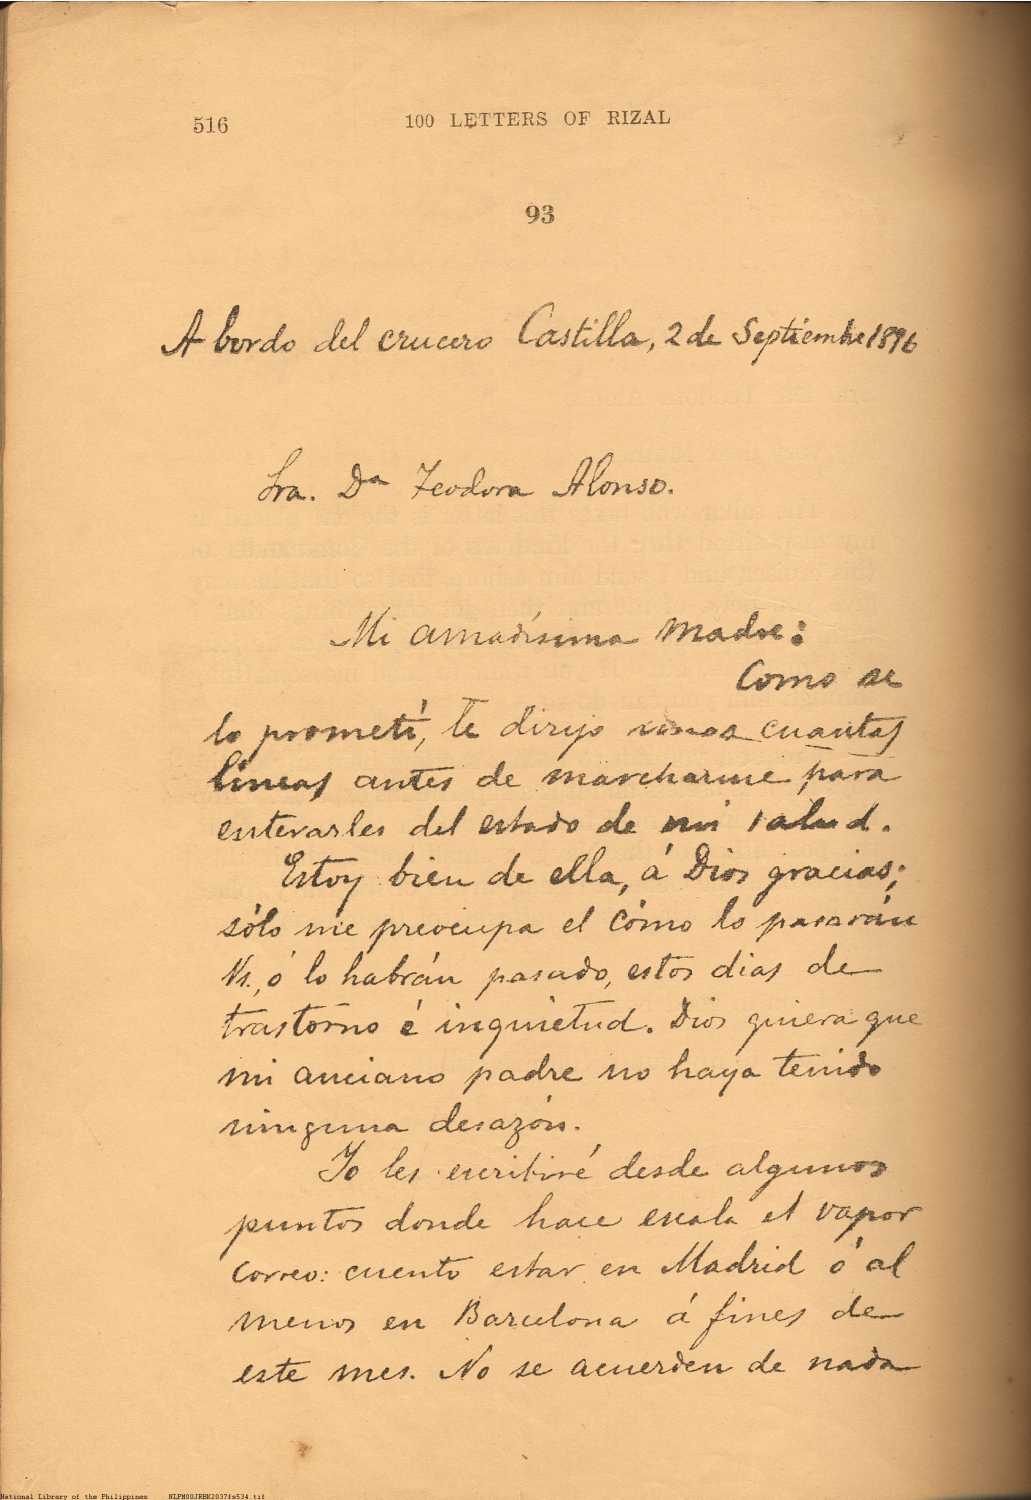 516
100 LETTERS OF RIZAL
93
A bordo del crucero Castilla, 2 de Septiembre 1896
Sra. Dª Teodora Alonso.
Mi amadísima Madre:
Como se
lo prometí, te dirijo unas cuantas
líneas antes de marcharme para
enterarles del estado de mi salud.
Estoy bien de ella, á Dios gracias;
sólo me preocupa el cómo lo pasarán
Vs., ó lo habrán pasado, estos dias de
trastorno é inquietud. Dios quiera que
mi anciano padre no haya tenido
ninguna desazón.
Yo les escribiré desde algunos
puntos donde hace escala el vapor
correo: cuento estar en Madrid ó al
menos en Barcelona á fines de
este mes. No se acuerden de nada
National Library of the Philippines NLPM00JRBK2037fs534.tif